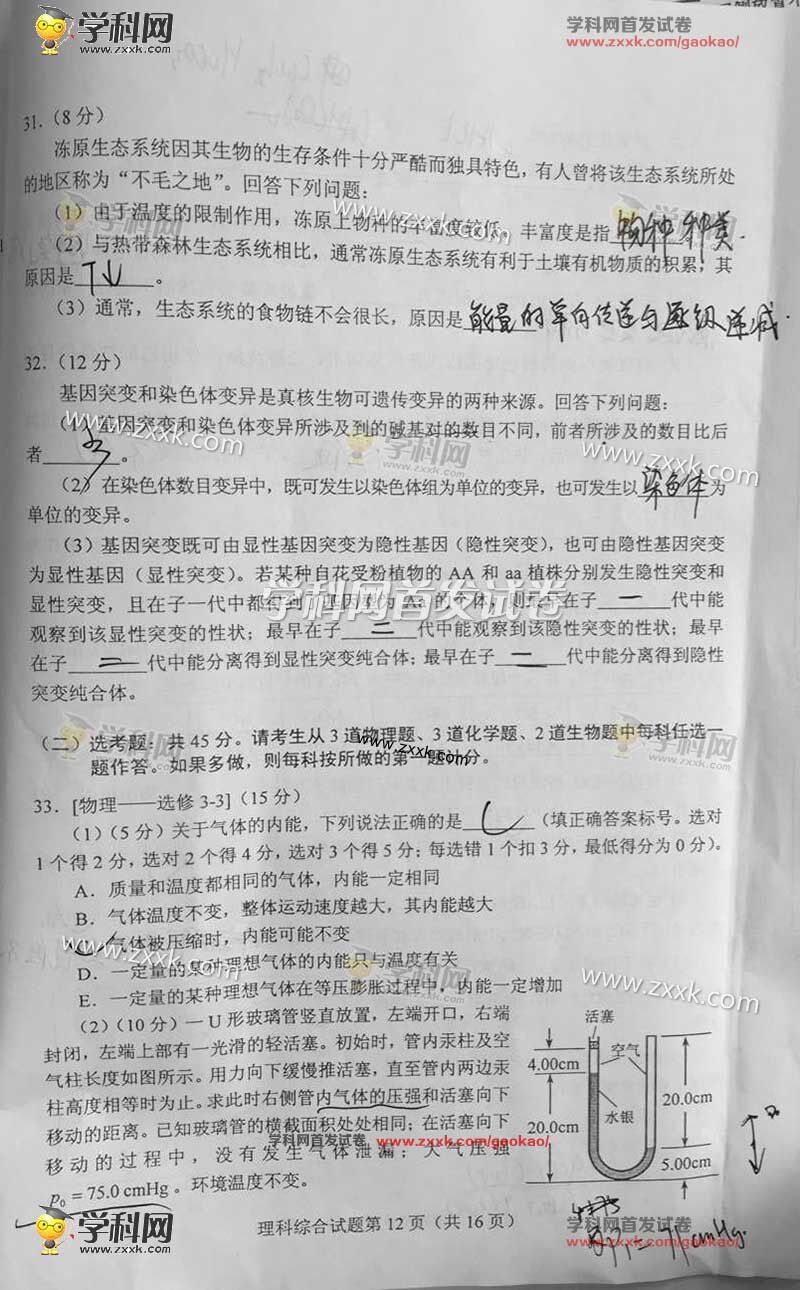 学科网
www.zxxk.com
学科网首发试卷
www.zxxk.com/gaokao/
31.（8分）
冻原生态系统因其生物的生存条件十分严酷而独具特色，有人曾将该生态系统所处
的地区称为“不毛之地”。回答下列问题：
（1）由于温度的限制作用，冻原上物种的丰富度较低。丰富度是指 物种种类.
（2）与热带森林生态系统相比，通常冻原生态系统有利于土壤有机物质的积累，其
原因是 T↓ 。
（3）通常，生态系统的食物链不会很长，原因是 能量的单向传递与逐级递减.
32.（12分）
基因突变和染色体变异是真核生物可遗传变异的两种来源。回答下列问题：
（1）基因突变和染色体变异所涉及到的碱基对的数目不同，前者所涉及的数目比后
者 少 。
（2）在染色体数目变异中，既可发生以染色体组为单位的变异，也可发生以 染色体 为
单位的变异。
（3）基因突变既可由显性基因突变为隐性基因（隐性突变），也可由隐性基因突变
为显性基因（显性突变）。若某种自花受粉植物的 AA 和 aa 植株分别发生隐性突变和
显性突变，且在子一代中都得到了基因型为 Aa 的个体，则最早在子 一 代中能
观察到该显性突变的性状；最早在子 二 代中能观察到该隐性突变的性状；最早
在子 三 代中能分离得到显性突变纯合体；最早在子 二 代中能分离得到隐性
突变纯合体。
（二）选考题：共 45 分。请考生从 3 道物理题、3 道化学题、2 道生物题中每科任选一
题作答。如果多做，则每科按所做的第一题计分。
33．[物理——选修 3-3]（15 分）
（1）（5 分）关于气体的内能，下列说法正确的是 （填正确答案标号。选对
1 个得 2 分，选对 2 个得 4 分，选对 3 个得 5 分；每选错 1 个扣 3 分，最低得分为 0 分）。
A．质量和温度都相同的气体，内能一定相同
B．气体温度不变，整体运动速度越大，其内能越大
气体被压缩时，内能可能不变
D．一定量的某种理想气体的内能只与温度有关
E．一定量的某种理想气体在等压膨胀过程中，内能一定增加
（2）（10 分）一 U 形玻璃管竖直放置，左端开口，右端
封闭，左端上部有一光滑的轻活塞。初始时，管内汞柱及空
气柱长度如图所示。用力向下缓慢推活塞，直至管内两边汞
柱高度相等时为止。求此时右侧管内气体的压强和活塞向下
移动的距离。已知玻璃管的横截面积处处相同；在活塞向下
移动的过程中，没有发生气体泄漏；大气压强
p₀ = 75.0 cmHg。环境温度不变。
活塞
空气
4.00cm
水银
20.0cm
20.0cm
5.00cm
理科综合试题第 12 页（共 16 页）